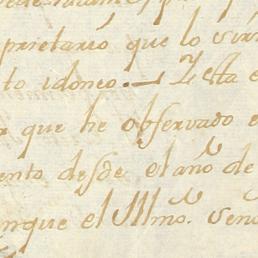 prietario que lo sir
to idoneo. — Y esta e
r que he observado e
ento desde el año de
unque el Illmo. Seno